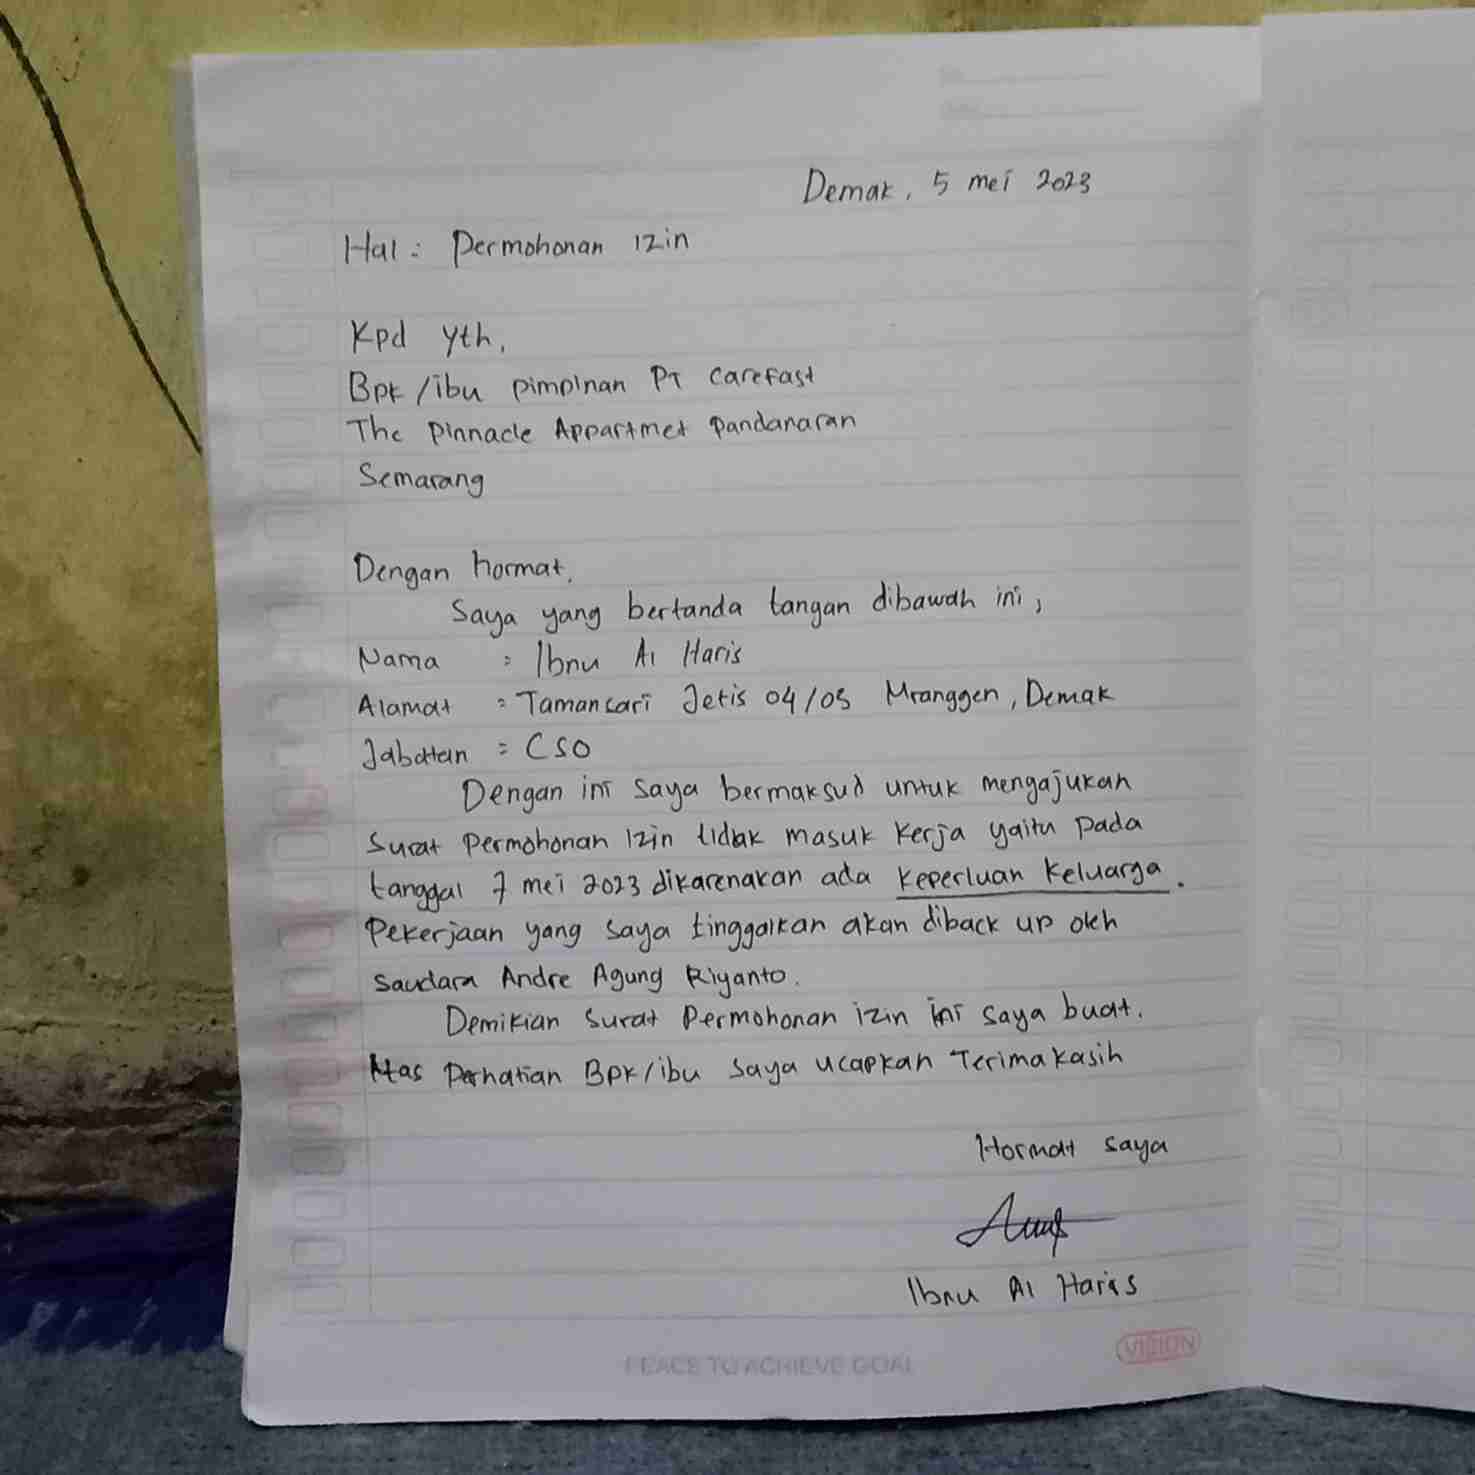 Demak, 5 mei 2023
Hal : Permohonan izin
Kpd yth,
Bpk /ibu pimpinan PT carefast
The pinnacle Appartmet pandanaran
Semarang
Dengan hormat,
Saya yang bertanda tangan dibawah ini,
Nama : Ibnu Al Haris
Alamat : Tamansari Jetis 04/05 Mranggen, Demak
Jabatan : CSO
Dengan ini saya bermaksud untuk mengajukan
Surat permohonan izin tidak masuk kerja yaitu pada
tanggal 7 mei 2023 dikarenakan ada keperluan keluarga.
Pekerjaan yang saya tinggalkan akan diback up oleh
saudara Andre Agung Riyanto.
Demikian surat permohonan izin ini saya buat.
Atas perhatian Bpk/ibu saya ucapkan Terimakasih
Hormat saya
Ibnu Al Haris
PEACE TO ACHIEVE GOAL
VISION